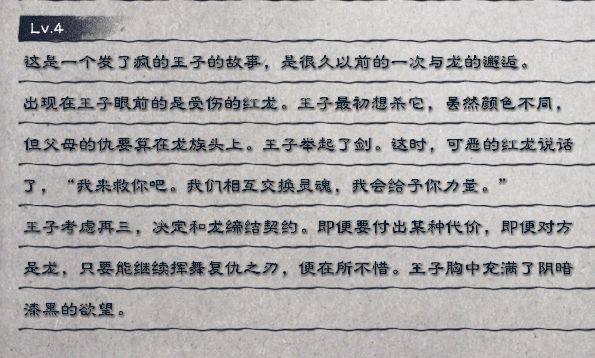 Lv.4
这是一个发了疯的王子的故事，是很久以前的一次与龙的邂逅。
出现在王子眼前的是受伤的红龙。王子最初想杀它，虽然颜色不同，
但父母的仇要算在龙族头上。王子举起了剑。这时，可恶的红龙说话
了，“我来救你吧。我们相互交换灵魂，我会给予你力量。”
王子考虑再三，决定和龙缔结契约。即便要付出某种代价，即便对方
是龙，只要能继续挥舞复仇之刃，便在所不惜。王子胸中充满了阴暗
漆黑的欲望。